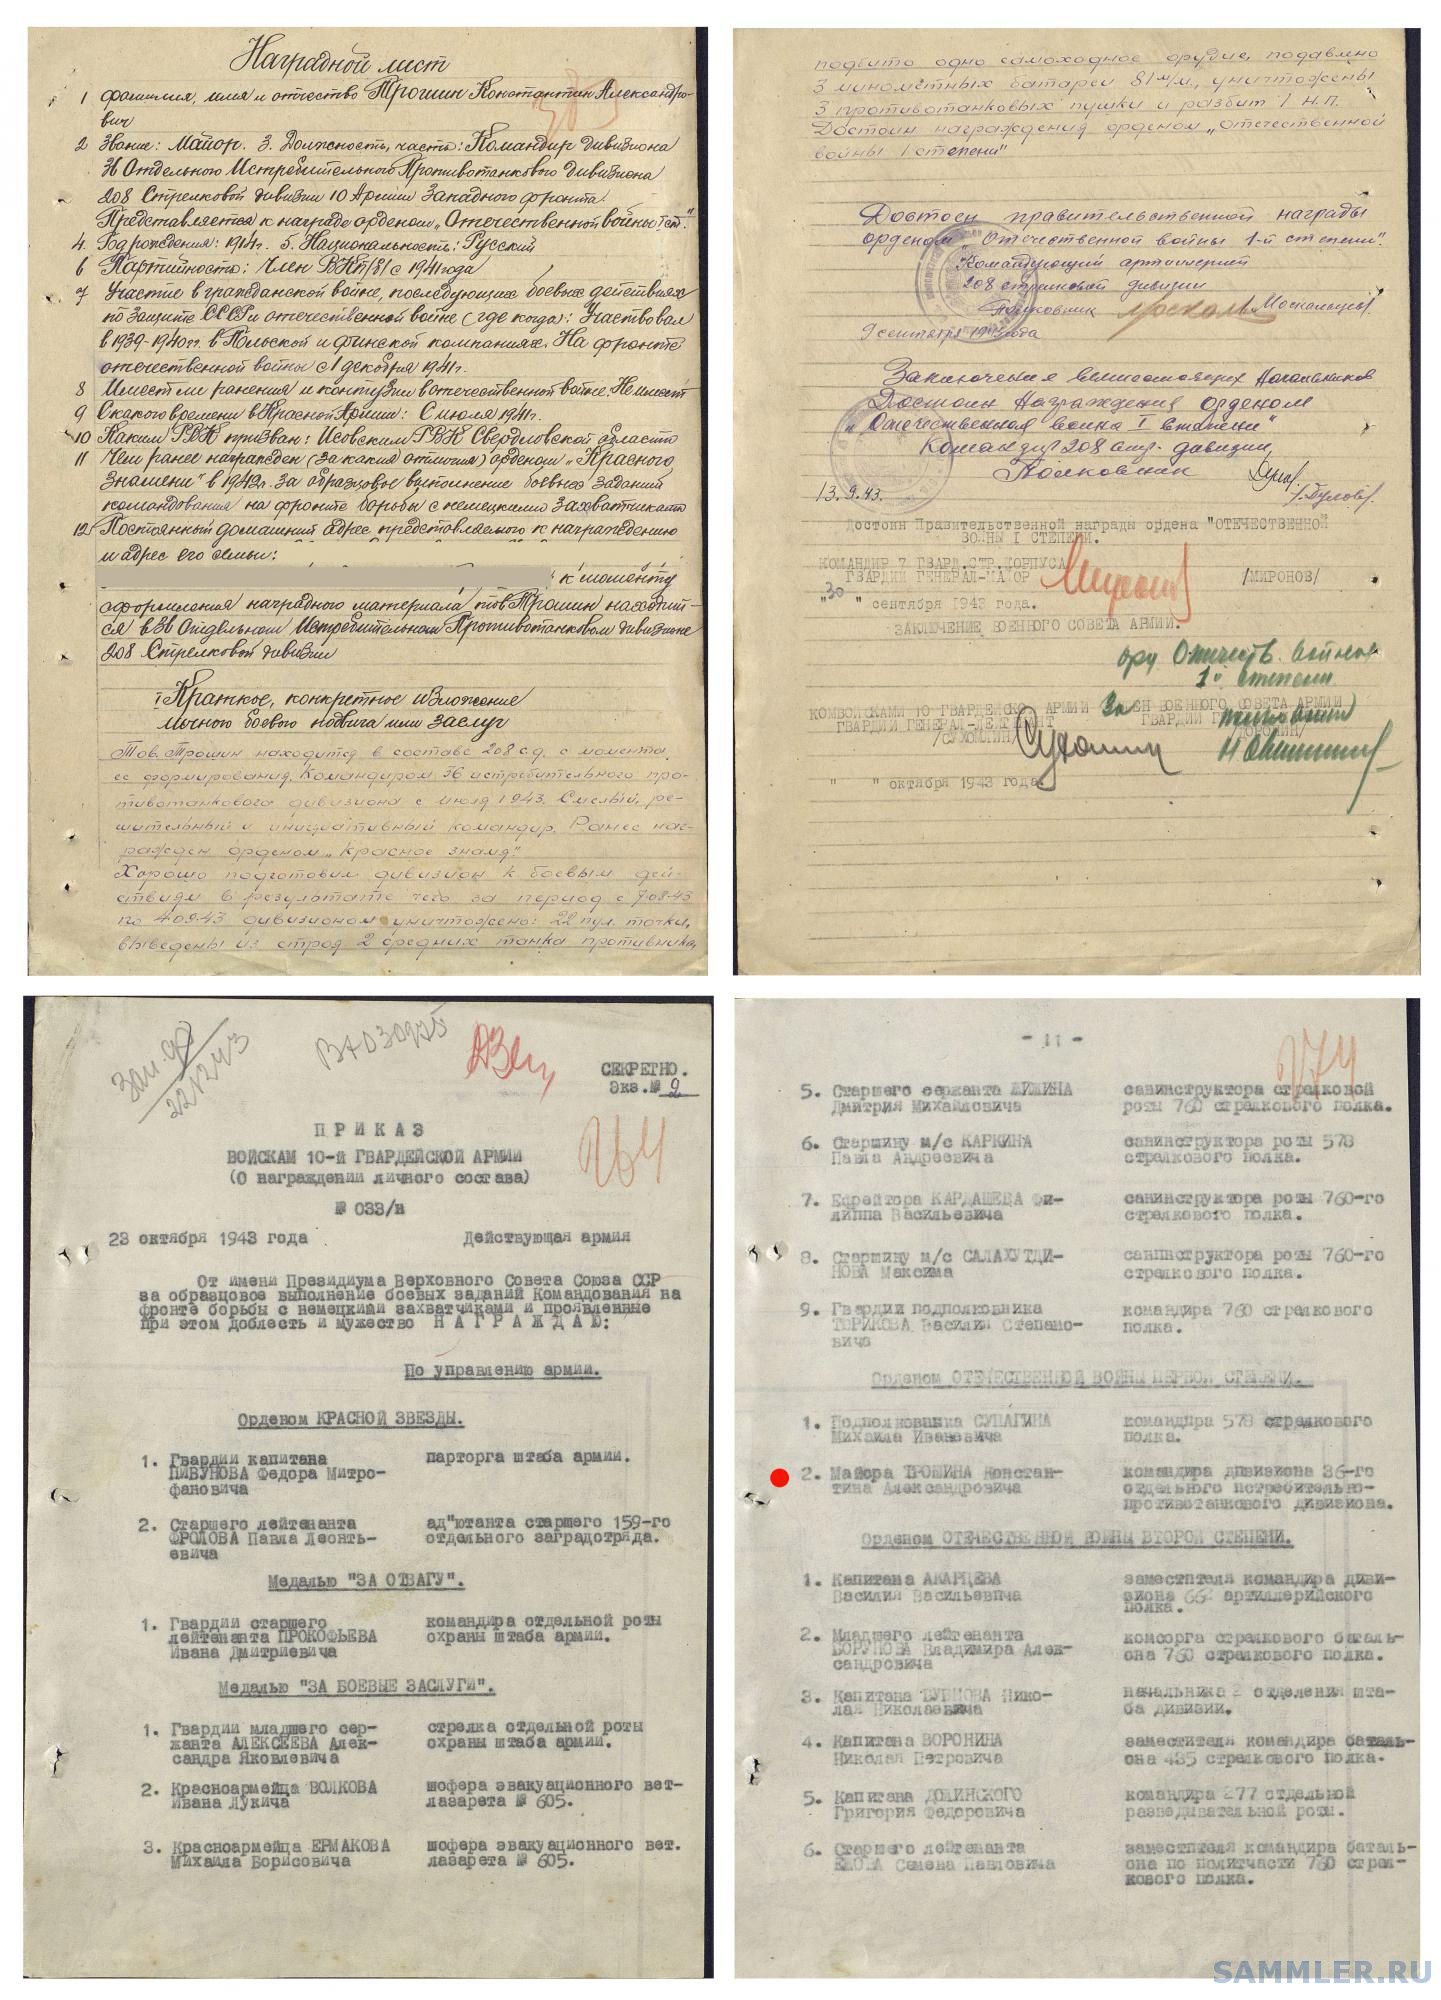 Наградной лист
1 фамилия, имя и отчество Трошин Константин Александро-
вич
2 Звание: Майор. 3. Должность, часть: Командир дивизиона
36 Отдельного Истребительного Противотанкового дивизиона
208 Стрелковой дивизии 10 Армии Западного фронта.
Представляется к награде орденом „Отечественной войны I ст."
4. Год рождения: 1914г. 5. Национальность: Русский
6 Партийность: Член ВКП/б/ с 1941 года
7 Участие в гражданской войне, последующих боевых действиях
по защите СССР и отечественной войне (где когда): Участвовал
в 1939-1940гг. в Польской и финской компаниях. На фронте
отечественной войны с 1 декабря 1941г.
8 Имеет ли ранения и контузии в отечественной войне. Не имеет
9 С какого времени в Красной Армии: С июля 1941г.
10 Каким РВК призван: Исовским РВК Свердловской области
11 Чем ранее награжден (за какия отличия) орденом „Красного
Знамени" в 1942г. За образцовое выполнение боевых заданий
командования на фронте борьбы с немецкими захватчиками
12 Постоянный домашний адрес представляемого к награждению
и адрес его семьи:
к моменту
оформления наградного материала тов Трошин находит-
ся в 36 Отдельном Истребительном Противотанковом дивизионе
208 Стрелковой дивизии
I Краткое, конкретное изложение
личного боевого подвига или заслуг
Тов. Трошин находится в составе 208 с.д. с момента
ее формирования. Командиром 36 истребительного про-
тивотанкового дивизиона с июля 1943. Смелый, ре-
шительный и инициативный командир. Ранее наг-
ражден орденом „Красное знамя".
Хорошо подготовил дивизион к боевым дей-
ствиям в результате чего за период с 7.08.43
по 4.09.43 дивизионом уничтожено: 22 пул. точки,
выведены из строя 2 средних танка противника,
подбито одно самоходное орудие, подавлено
3 минометных батареи 81 м/м., уничтожены
3 противотанковых пушки и разбит 1 Н.П.
Достоин награждения орденом „Отечественной
войны I степени"
Достоен правительственной награды
орденом „Отечественной войны 1-й степени".
Командующий артиллерией
208 стрелковой дивизии
Полковник
9 сентября 1943 года
Заключение вышестоящих начальников
Достоин награждения орденом
„Отечественная война I степени"
Командир 208 стр. дивизии
Полковник
13.9.43.
Достоин Правительственной награды ордена "ОТЕЧЕСТВЕННОЙ
ВОЙНЫ I СТЕПЕНИ.
КОМАНДИР 7 ГВАРД.СТР.КОРПУСА
ГВАРДИИ ГЕНЕРАЛ-МАЙОР /МИРОНОВ/
"30" сентября 1943 года.
ЗАКЛЮЧЕНИЕ ВОЕННОГО СОВЕТА АРМИИ.
орд Отечеств. войны
1й степени
КОМВОЙСКАМИ 10 ГВАРДЕЙСКОЙ АРМИИ ЧЛЕН ВОЕННОГО СОВЕТА АРМИИ
ГВАРДИИ ГЕНЕРАЛ-ЛЕЙТЕНАНТ ГВАРДИИ
/СУХОМЛИН/
" " октября 1943 года.
СЕКРЕТНО.
Экз.№ 2
264
ПРИКАЗ
ВОЙСКАМ 10-й ГВАРДЕЙСКОЙ АРМИИ
(О награждении личного состава)
№ 033/н
23 октября 1943 года Действующая армия
От имени Президиума Верховного Совета Союза ССР
за образцовое выполнение боевых заданий Командования на
фронте борьбы с немецкими захватчиками и проявленные
при этом доблесть и мужество НАГРАЖДАЮ:
По управлению армии.
Орденом КРАСНОЙ ЗВЕЗДЫ.
1. Гвардии капитана парторга штаба армии.
ПИВУНОВА Федора Митро-
фановича
2. Старшего лейтенанта ад"ютанта старшего 159-го
ФРОЛОВА Павла Леонть- отдельного заградотряда.
евича
Медалью "ЗА ОТВАГУ".
1. Гвардии старшего командира отдельной роты
лейтенанта ПРОКОФЬЕВА охраны штаба армии.
Ивана Дмитриевича
Медалью "ЗА БОЕВЫЕ ЗАСЛУГИ".
1. Гвардии младшего сер- стрелка отдельной роты
жанта АЛЕКСЕЕВА Алек- охраны штаба армии.
сандра Яковлевича
2. Красноармейца ВОЛКОВА шофера эвакуационного вет-
Ивана Лукича лазарета № 605.
3. Красноармейца ЕРМАКОВА шофера эвакуационного вет.
Михаила Борисовича лазарета № 605.
- 11 -
274
5. Старшего сержанта санинструктора стрелковой
Дмитрия Михайловича роты 760 стрелкового полка.
6. Старшину м/с КАРКИНА санинструктора роты 578
Павла Андреевича стрелкового полка.
7. Ефрейтора КАРДАШЕВА Фи- санинструктора роты 760-го
липпа Васильевича стрелкового полка.
8. Старшину м/с САЛАХУТДИ- санинструктора роты 760-го
НОВА Максима стрелкового полка.
9. Гвардии подполковника командира 760 стрелкового
ТОРИКОВА Василия Степано- полка.
вича
Орденом ОТЕЧЕСТВЕННОЙ ВОЙНЫ ПЕРВОЙ СТЕПЕНИ.
1. Подполковника СУПАГИНА командира 578 стрелкового
Михаила Ивановича полка.
2. Майора ТРОШИНА Констан- командира дивизиона 36-го
тина Александровича отдельного истребительно-
противотанкового дивизиона.
Орденом ОТЕЧЕСТВЕННОЙ ВОЙНЫ ВТОРОЙ СТЕПЕНИ.
1. Капитана АКАРЦЕВА заместителя командира диви-
Василия Васильевича зиона 662 артиллерийского
полка.
2. Младшего лейтенанта комсорга стрелкового баталь-
БОРУНОВА Владимира Алек- она 760 стрелкового полка.
сандровича
3. Капитана БУБНОВА Нико- начальника 2 отделения шта-
лая Николаевича ба дивизии.
4. Капитана ВОРОНИНА заместителя командира баталь-
Николая Петровича она 435 стрелкового полка.
5. Капитана ДОЛИНСКОГО командира 277 отдельной
Григория Федоровича разведывательной роты.
6. Старшего лейтенанта заместителя командира баталь-
Семена Павловича она по политчасти 760 стрел-
кового полка.
SAMMLER.RU